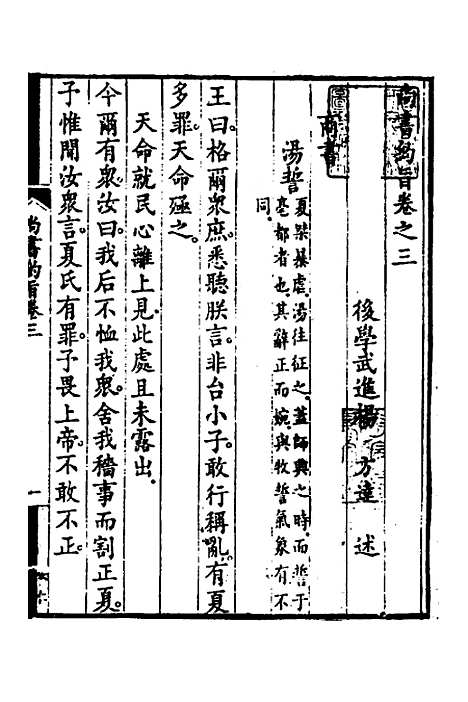 尚書約旨卷之三
後學武進楊方達述
商書
湯誓夏桀暴虐湯往征之蓋師興之時而誓于
亳都者也其辭正而婉與牧誓氣象有不
同
王曰格爾衆庶悉聽朕言。非台小子。敢行稱亂。有夏
多罪。天命殛之。
天命就民心離上見。此處且未露出。
今爾有衆。汝曰。我后不恤我衆。舍我穡事而割正夏。
予惟聞汝衆言。夏氏有罪。予畏上帝。不敢不正。
尚書約旨卷三
一